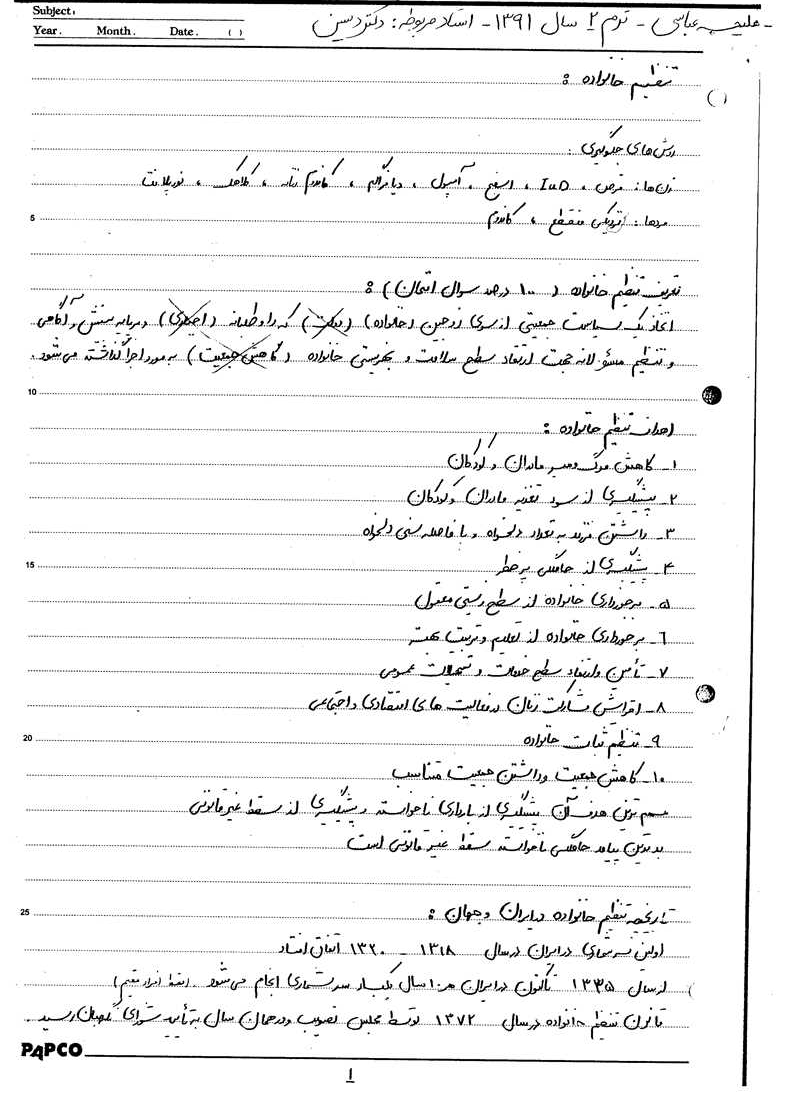 Subject:
Year. Month. Date. ( )
عباسی - ترم ۲ سال ۱۳۹۱ - استاد مربوطه: دکتر
تنظیم خانواده :
( )
روش‌های جلوگیری :
زن‌ها: قرص ، IUD ، اسفنج ، آمپول ، دیافراگم ، کاندوم زنانه ، کلاهک ، نورپلانت
5
مردها: نزدیکی منقطع ، کاندوم
تعریف تنظیم خانواده ( ۱۰۰ درصد سوال امتحان ) :
اتخاذ یک سیاست جمعیتی از سوی زوجین (خانواده) (دولت) که داوطلبانه (اجباری) و بر پایه بینش و آگاهی
و تنظیم مسئولانه جهت ارتقاء سطح سلامت و بهزیستی خانواده (کاهش جمعیت) به مورد اجرا گذاشته می‌شود.
10
اهداف تنظیم خانواده :
۱- کاهش مرگ و میر مادران و کودکان
۲- پیشگیری از سوء تغذیه مادران و کودکان
۳- داشتن فرزند به تعداد دلخواه و با فاصله سنی دلخواه
15
۴- پیشگیری از حاملگی پرخطر
۵- برخورداری خانواده از سطح زیستی معقول
۶- برخورداری خانواده از تعلیم و تربیت بهتر
۷- تأمین و ارتقاء سطح خدمات و تسهیلات عمومی
۸- افزایش مشارکت زنان در فعالیت های اقتصادی و اجتماعی
20
۹- تنظیم ثبات خانواده
۱۰- کاهش جمعیت و داشتن جمعیت متناسب
مهم ترین هدف آن پیشگیری از بارداری ناخواسته و پیشگیری از سقط غیرقانونی
بدترین پیامد حاملگی ناخواسته سقط غیر قانونی است
25
تاریخچه تنظیم خانواده در ایران و جهان :
اولین سرشماری در ایران در سال ۱۳۱۸ - ۱۳۲۰ اتفاق افتاد
از سال ۱۳۳۵ تاکنون در ایران هر ۱۰ سال یکبار سرشماری انجام می‌شود. (فقط افراد مقیم)
قانون تنظیم خانواده در سال ۱۳۷۲ توسط مجلس تصویب و در همان سال به تأیید شورای نگهبان رسید.
PAPCO
1